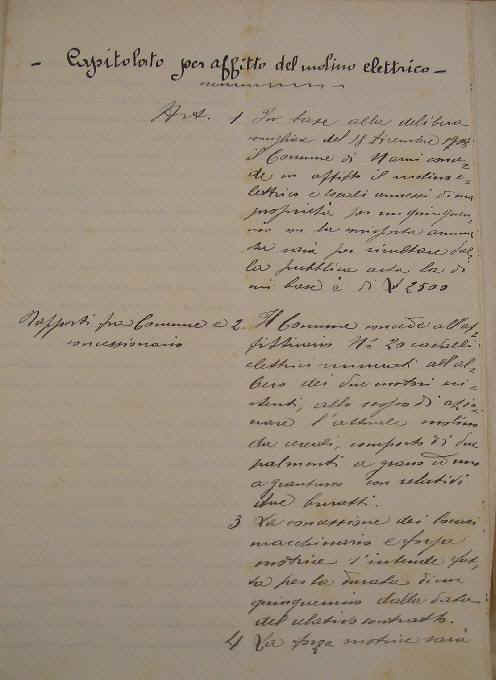 - Capitolato per affitto del molino elettrico -
Art. 1 In base alla delibera
consigliare del 18 Dicembre
il Comune di Narni conce=
de in affitto il molino e=
lettrico e locali annessi di sua
proprietà per un quinquen=
nio con la corrisposta annua
che sarà per risultare dal=
la pubblica asta la di
cui base è di £ 2500
Rapporti fra Comune e
concessionario
2 Il Comune concede all'af=
fittuario N. 20 cavalli
elettrici misurati all'al=
bero dei due motori esi=
stenti, allo scopo di azio=
nare l'attuale molino
da cereali, composto di due
palmenti a grano ed uno
a granturco con relativi
due buratti.
3 La concessione dei locali
macchinario e forza
motrice s'intende fat=
ta per la durata di un
quinquennio dalla data
del relativo contratto.
4 La forza motrice sarà